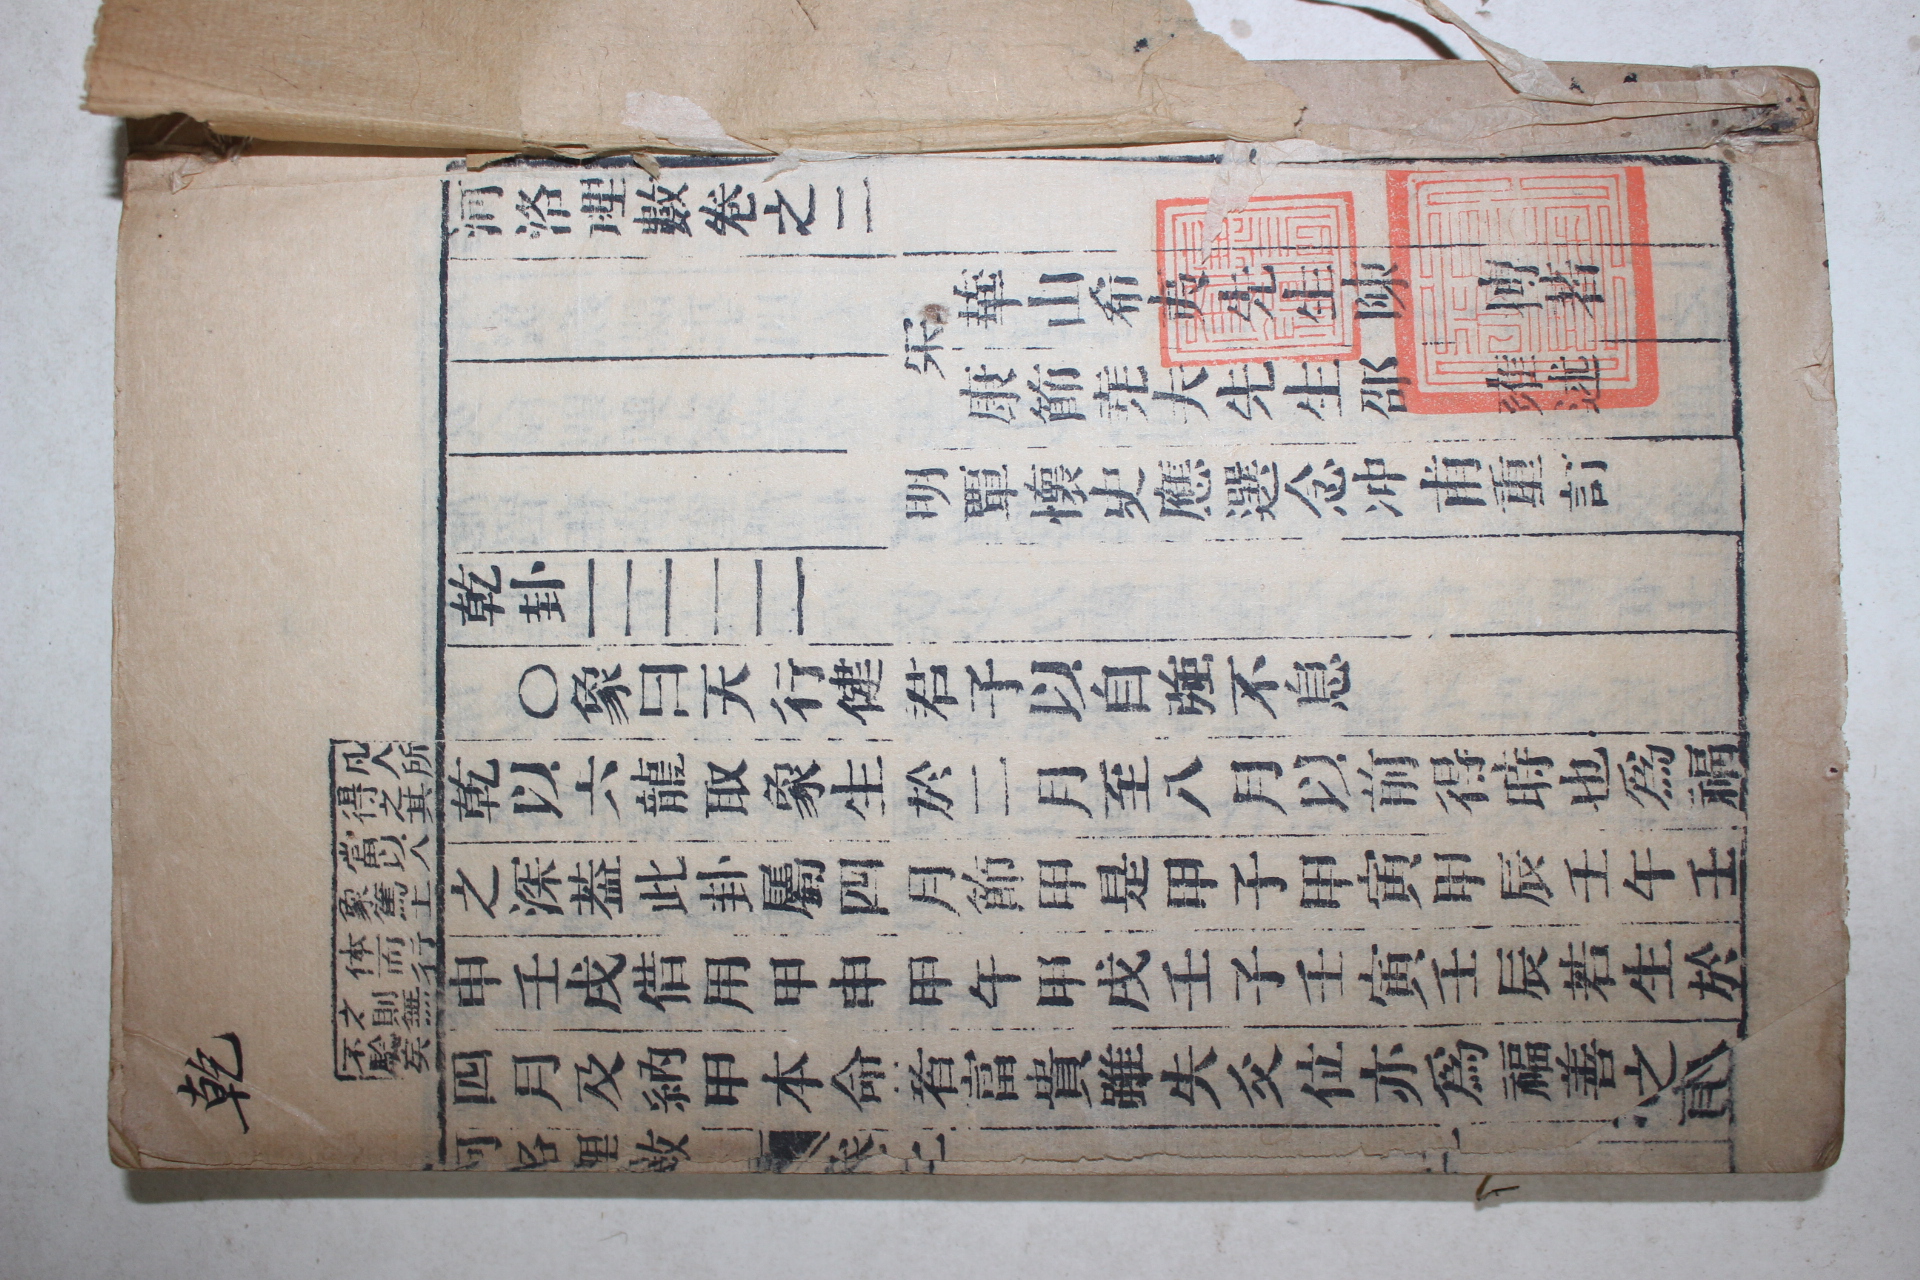 河洛理數卷之二
宋
華山希夷先生陳 摶著
康節堯夫先生邵 雍述
明覃懷史應選念冲甫重訂
乾卦
○象曰天行健君子以自強不息
乾以六龍取象生於二月至八月以前得時也爲福
之深葢此卦屬四月節甲是甲子甲寅甲辰壬午壬
申壬戌借用甲申甲午甲戌壬子壬寅壬辰若生於
四月及納甲本命者富貴雖失爻位亦爲福善之
河洛理數 卷二
凡得當象体之不
人之以爲而則驗
所其人上行無矣
乾